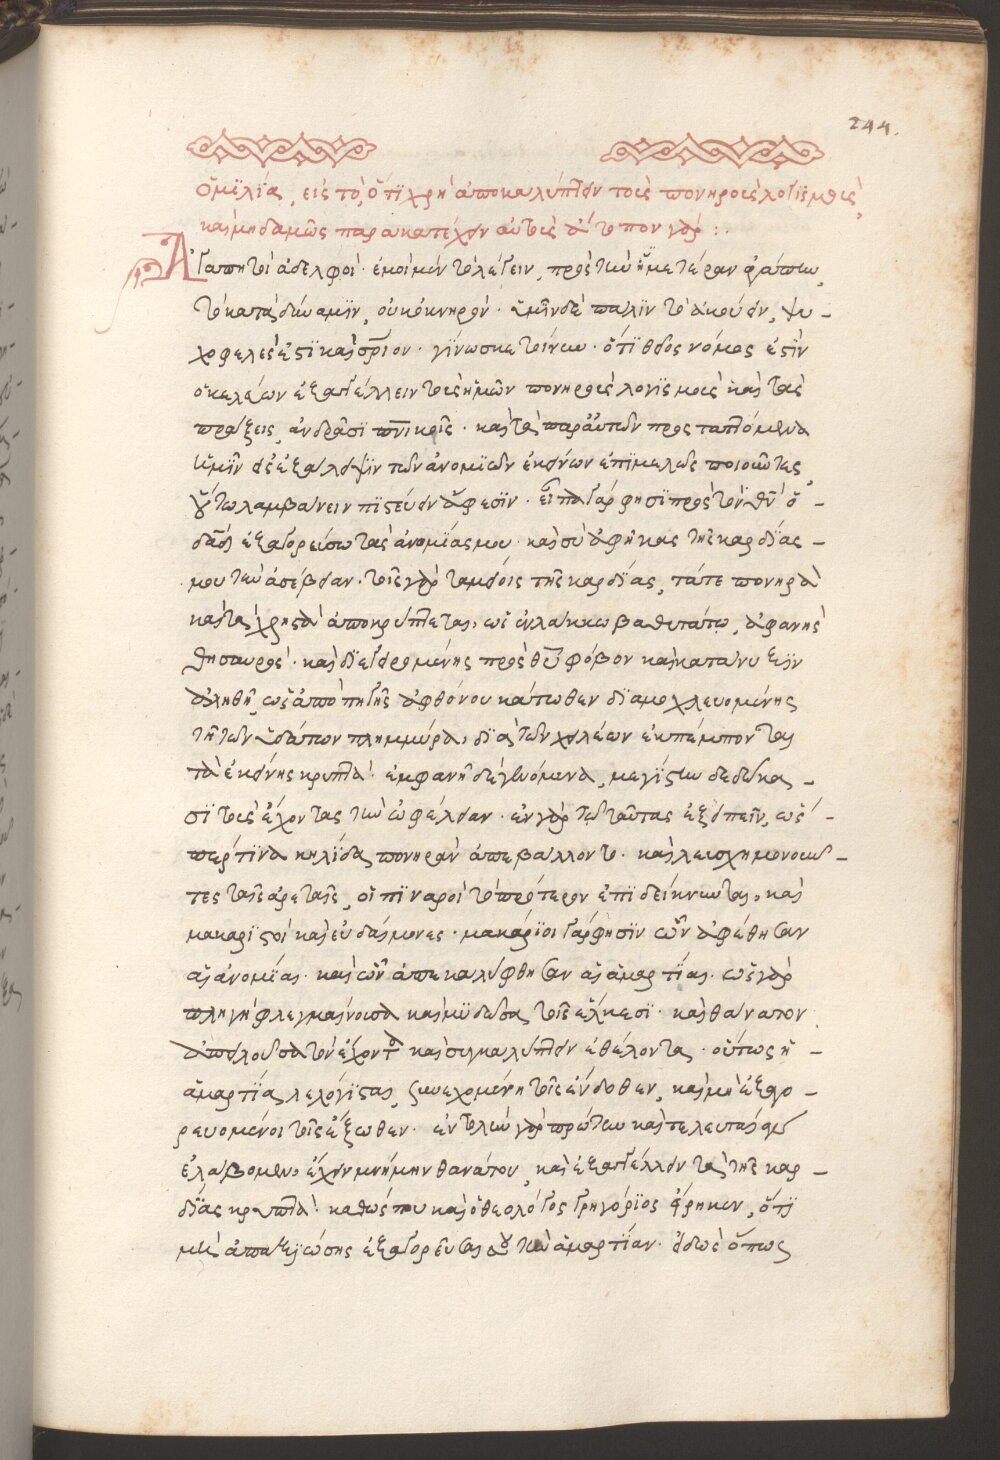 244.
ὁμιλία, εἰς τὸ, ὅτι χρὴ ἀποκαλύπτειν τοὺς πονηροὺς λογισμοὺς,
καὶ μηδαμῶς παρακατέχειν αὐτοὺς
Ἀγαπητοὶ ἀδελφοί· ἐμοὶ μὲν τὸ λέγειν, πρὸς τὴν ὑμετέραν ἀγάπην,
τὸ κατὰ δύναμιν, οὐκ ὀκνηρόν· ὑμῖν δὲ πάλιν τὸ ἀκούειν, ψυ-
χωφελές ἐστι καὶ σωτήριον· γινωσκέτω· ὅτι θεῖος νόμος ἐστὶν
ὁ κελεύων ἐξαγγέλλειν τοὺς ἡμῶν πονηροὺς λογισμοὺς καὶ τὰς
πράξεις, ἀνδράσι πνευματικοῖς· καὶ τὰ παρ' αὐτῶν προσταττόμενα
ὑμῖν εἰς ἐξάλειψιν τῶν ἀνομιῶν ἐκείνων ἐπιμελῶς ποιοῦντας
οὕτω λαμβάνειν πιστεύειν ἄφεσιν· εἶπα γάρ φησι πρὸς τὸν θεὸν ὁ
δαδ ἐξαγορεύσω τὰς ἀνομίας μου· καὶ σὺ ἀφῆκας τῆς καρδίας
μου τὴν ἀσέβειαν· τοῖς γὰρ ταμείοις τῆς καρδίας, τά τε πονηρὰ
καὶ τὰ χρηστὰ ἀποκρύπτεται, ὡς ἐν λάκκω βαθυτάτω, ἀφανὴς
θησαυρός· καὶ διεγειρομένης πρὸς θεοῦ φόβον καὶ κατάνυξιν
ἀληθῆ, ὡς ἀπὸ πηγῆς ἀφθόνου κάτωθεν διαμοχλευομένης
τῆ τῶν ὑδάτων πλημμύρα, διὰ τῶν χειλέων ἐκπέμπονται
τὰ ἐκείνης κρυπτά· ἐμφανῆ δὲ γενόμενα, μεγίστην δεδώκα-
σι τοὺς ἔχοντας τὴν ὠφέλειαν· ἐν γὰρ τῶ ταῦτας ἐξειπεῖν, ὥσ-
περ τινα κηλίδα πονηρὰν ἀπεβάλλοντο· καὶ λευσχημονοῦν-
τες ταῖς ἀρεταῖς, οἱ πιναροὶ τὸ πρότερον ἐπιδείκνυνται, καὶ
μακαριστοὶ καὶ εὐδαίμονες· μακάριοι γάρ φησιν ὧν ἀφέθησαν
αἱ ἀνομίαι· καὶ ὧν ἀπεκαλύφθησαν αἱ ἁμαρτίαι· ὡς γὰρ
πληγὴ φλεγμαίνουσα καὶ μυδῶσα τοῖς ἕλκεσι· καὶ θάνατον
ἀπειλοῦσα τὸν ἔχοντα καὶ συγκαλύπτειν ἐθέλοντα· οὕτως ἡ
ἁμαρτία λελόγισται, συνεχομένη τοῖς ἔνδοθεν, καὶ μὴ ἐξαγο-
ρευομένοι τοῖς ἔξωθεν· ἐντολὴν γὰρ πρώτην καὶ τελευταίαν
ἐλάβομεν, ἔχειν μνήμην θανάτου, καὶ ἐξαγγέλλειν τὰ τῆς καρ-
δίας κρυπτά· καθώς που καὶ ὁ θεολόγος Γρηγόριος εἴρηκεν, ὅτι
μὴ ἀπαξιώσης ἐξαγορεῦσαί σου τὴν ἁμαρτίαν· εἰδὼς ὅπως